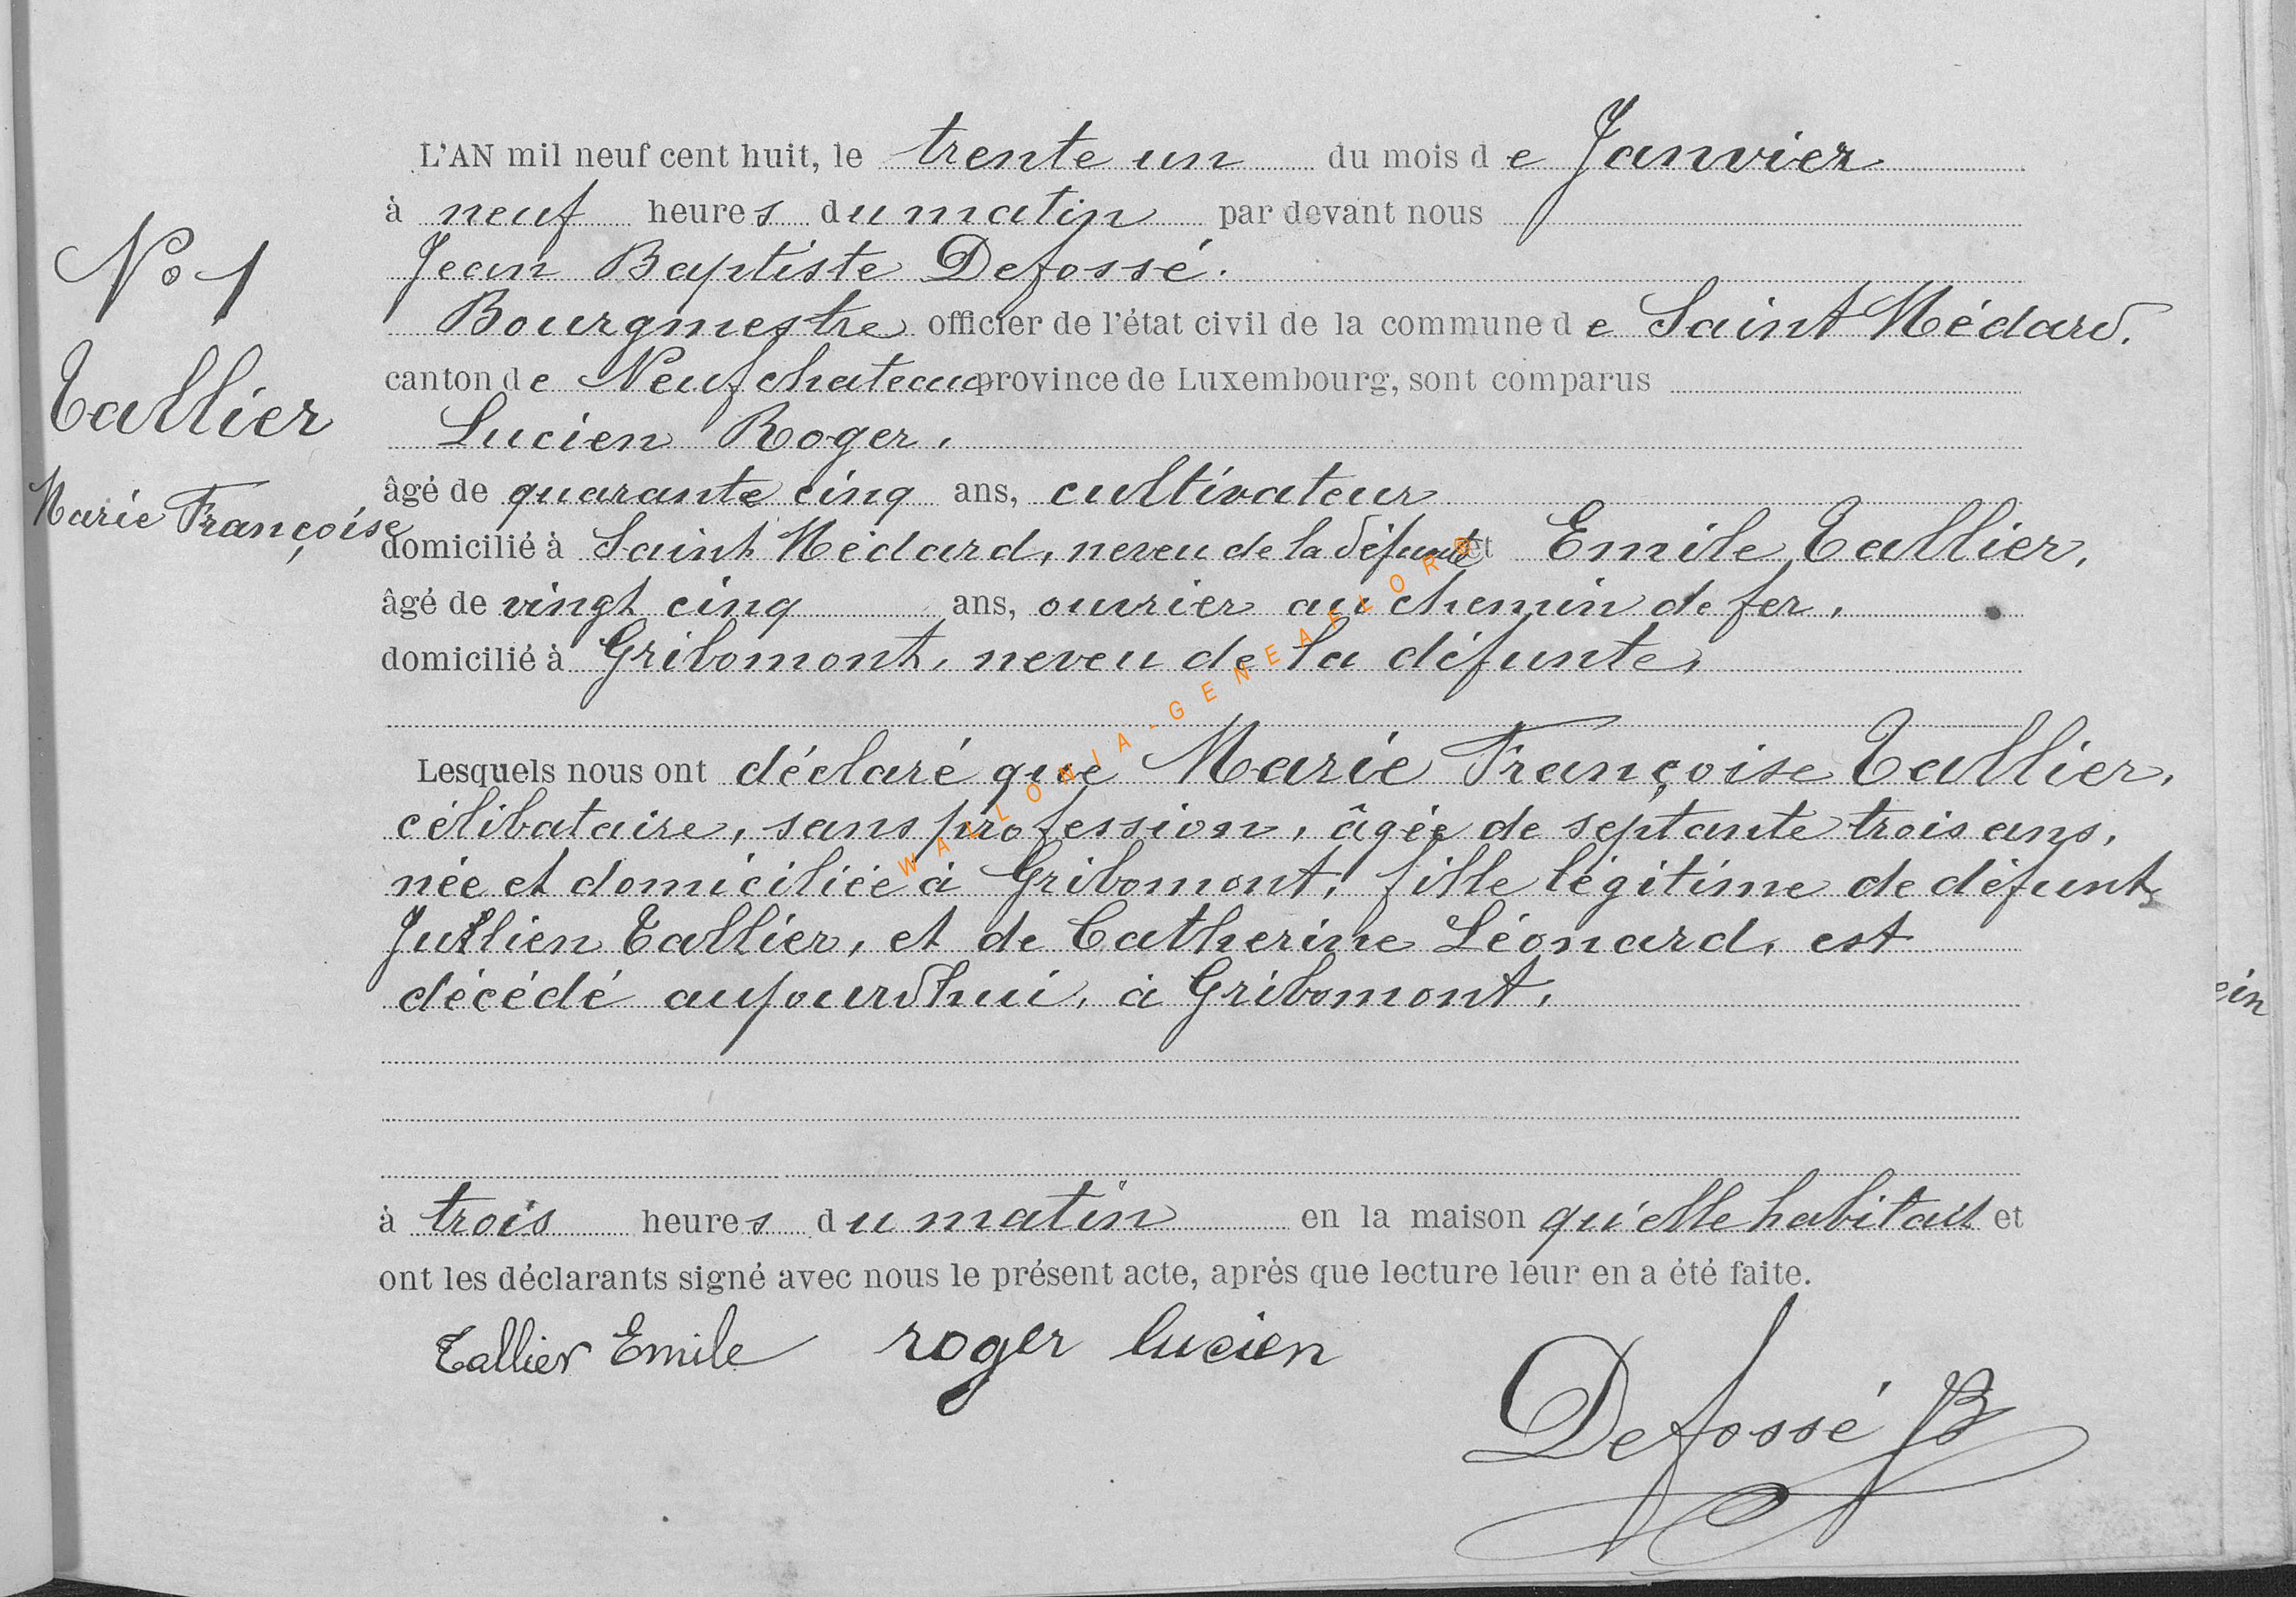 L'AN mil neuf cent huit, le trente un du mois de Janvier
à neuf heures du matin par devant nous
Jean Baptiste Defossé.
Bourgmestre officier de l'état civil de la commune de Saint Médard.
canton de Neufchateau province de Luxembourg, sont comparus
Lucien Roger,
âgé de quarante cinq ans, cultivateur
domicilié à Saint Médard, neveu de la défunte et Emile Tallier,
âgé de vingt cinq ans, ouvrier au chemin de fer,
domicilié à Gribomont, neveu de la défunte,
Lesquels nous ont déclaré que Marie Françoise Tallier,
célibataire, sans profession, âgée de septante trois ans,
née et domiciliée à Gribomont, fille légitime de défunts
Jullien Tallier, et de Catherine Léonard, est
décédé aujourd'hui, à Gribomont,
à trois heures du matin en la maison qu'elle habitait et
ont les déclarants signé avec nous le présent acte, après que lecture leur en a été faite.
Tallier Emile roger lucien
Defossé JB
No 1
Tallier
Marie Françoise
WALLONIA-GENEAFLOR©
ein